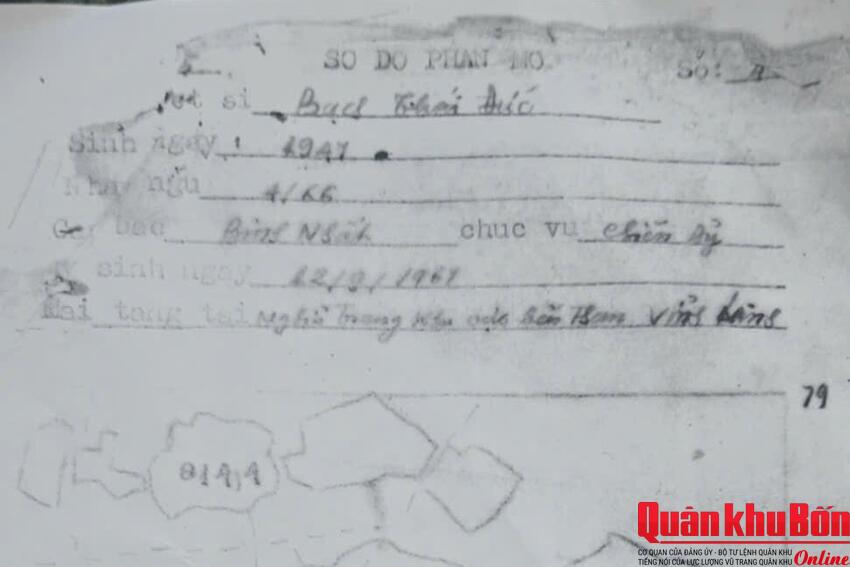 SO DO PHAN MO.
Số: 4
Liet si Bạch Thái Đức
Sinh ngay 1947
Nhap ngu 4/66
Cap bac Binh Nhất chuc vu chiến sỹ
Hy sinh ngay 12/9/1967
Mai tang tai Nghĩa Trang khu Bến Than Vĩnh
79
814,4
Quân khu Bốn
CƠ QUAN CỦA ĐẢNG ỦY - BỘ TƯ LỆNH QUÂN KHU
TIẾNG NÓI CỦA LỰC LƯỢNG VŨ TRANG QUÂN KHU Online